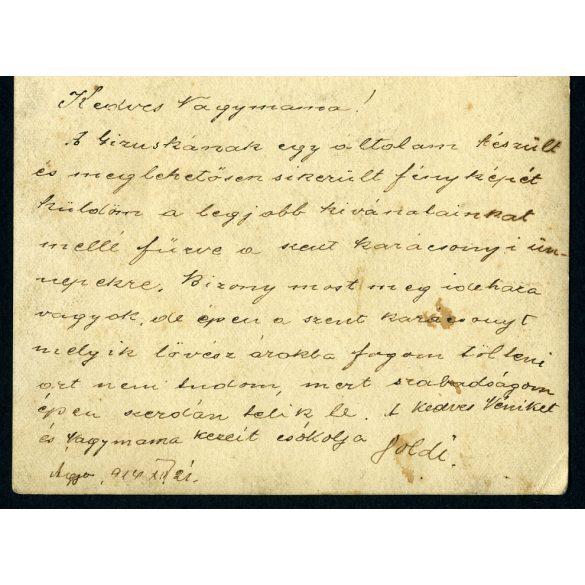 Kedves Nagymama!
A Gizuskának egy általam készült
és meglehetősen sikerült fényképét
küldöm a legjobb kivánalainkat
mellé fűzve a szent karácsonyi ün-
nepekre. Bizony most meg idehaza
vagyok, de épen a szent karácsonyt
melyik lövész árokba fogom tölteni
azt nem tudom, mert szabadságom
épen szerdán telik le. A kedves Néniket
és Nagymama kezeit csókolja
Goldi.
914 XII/21.